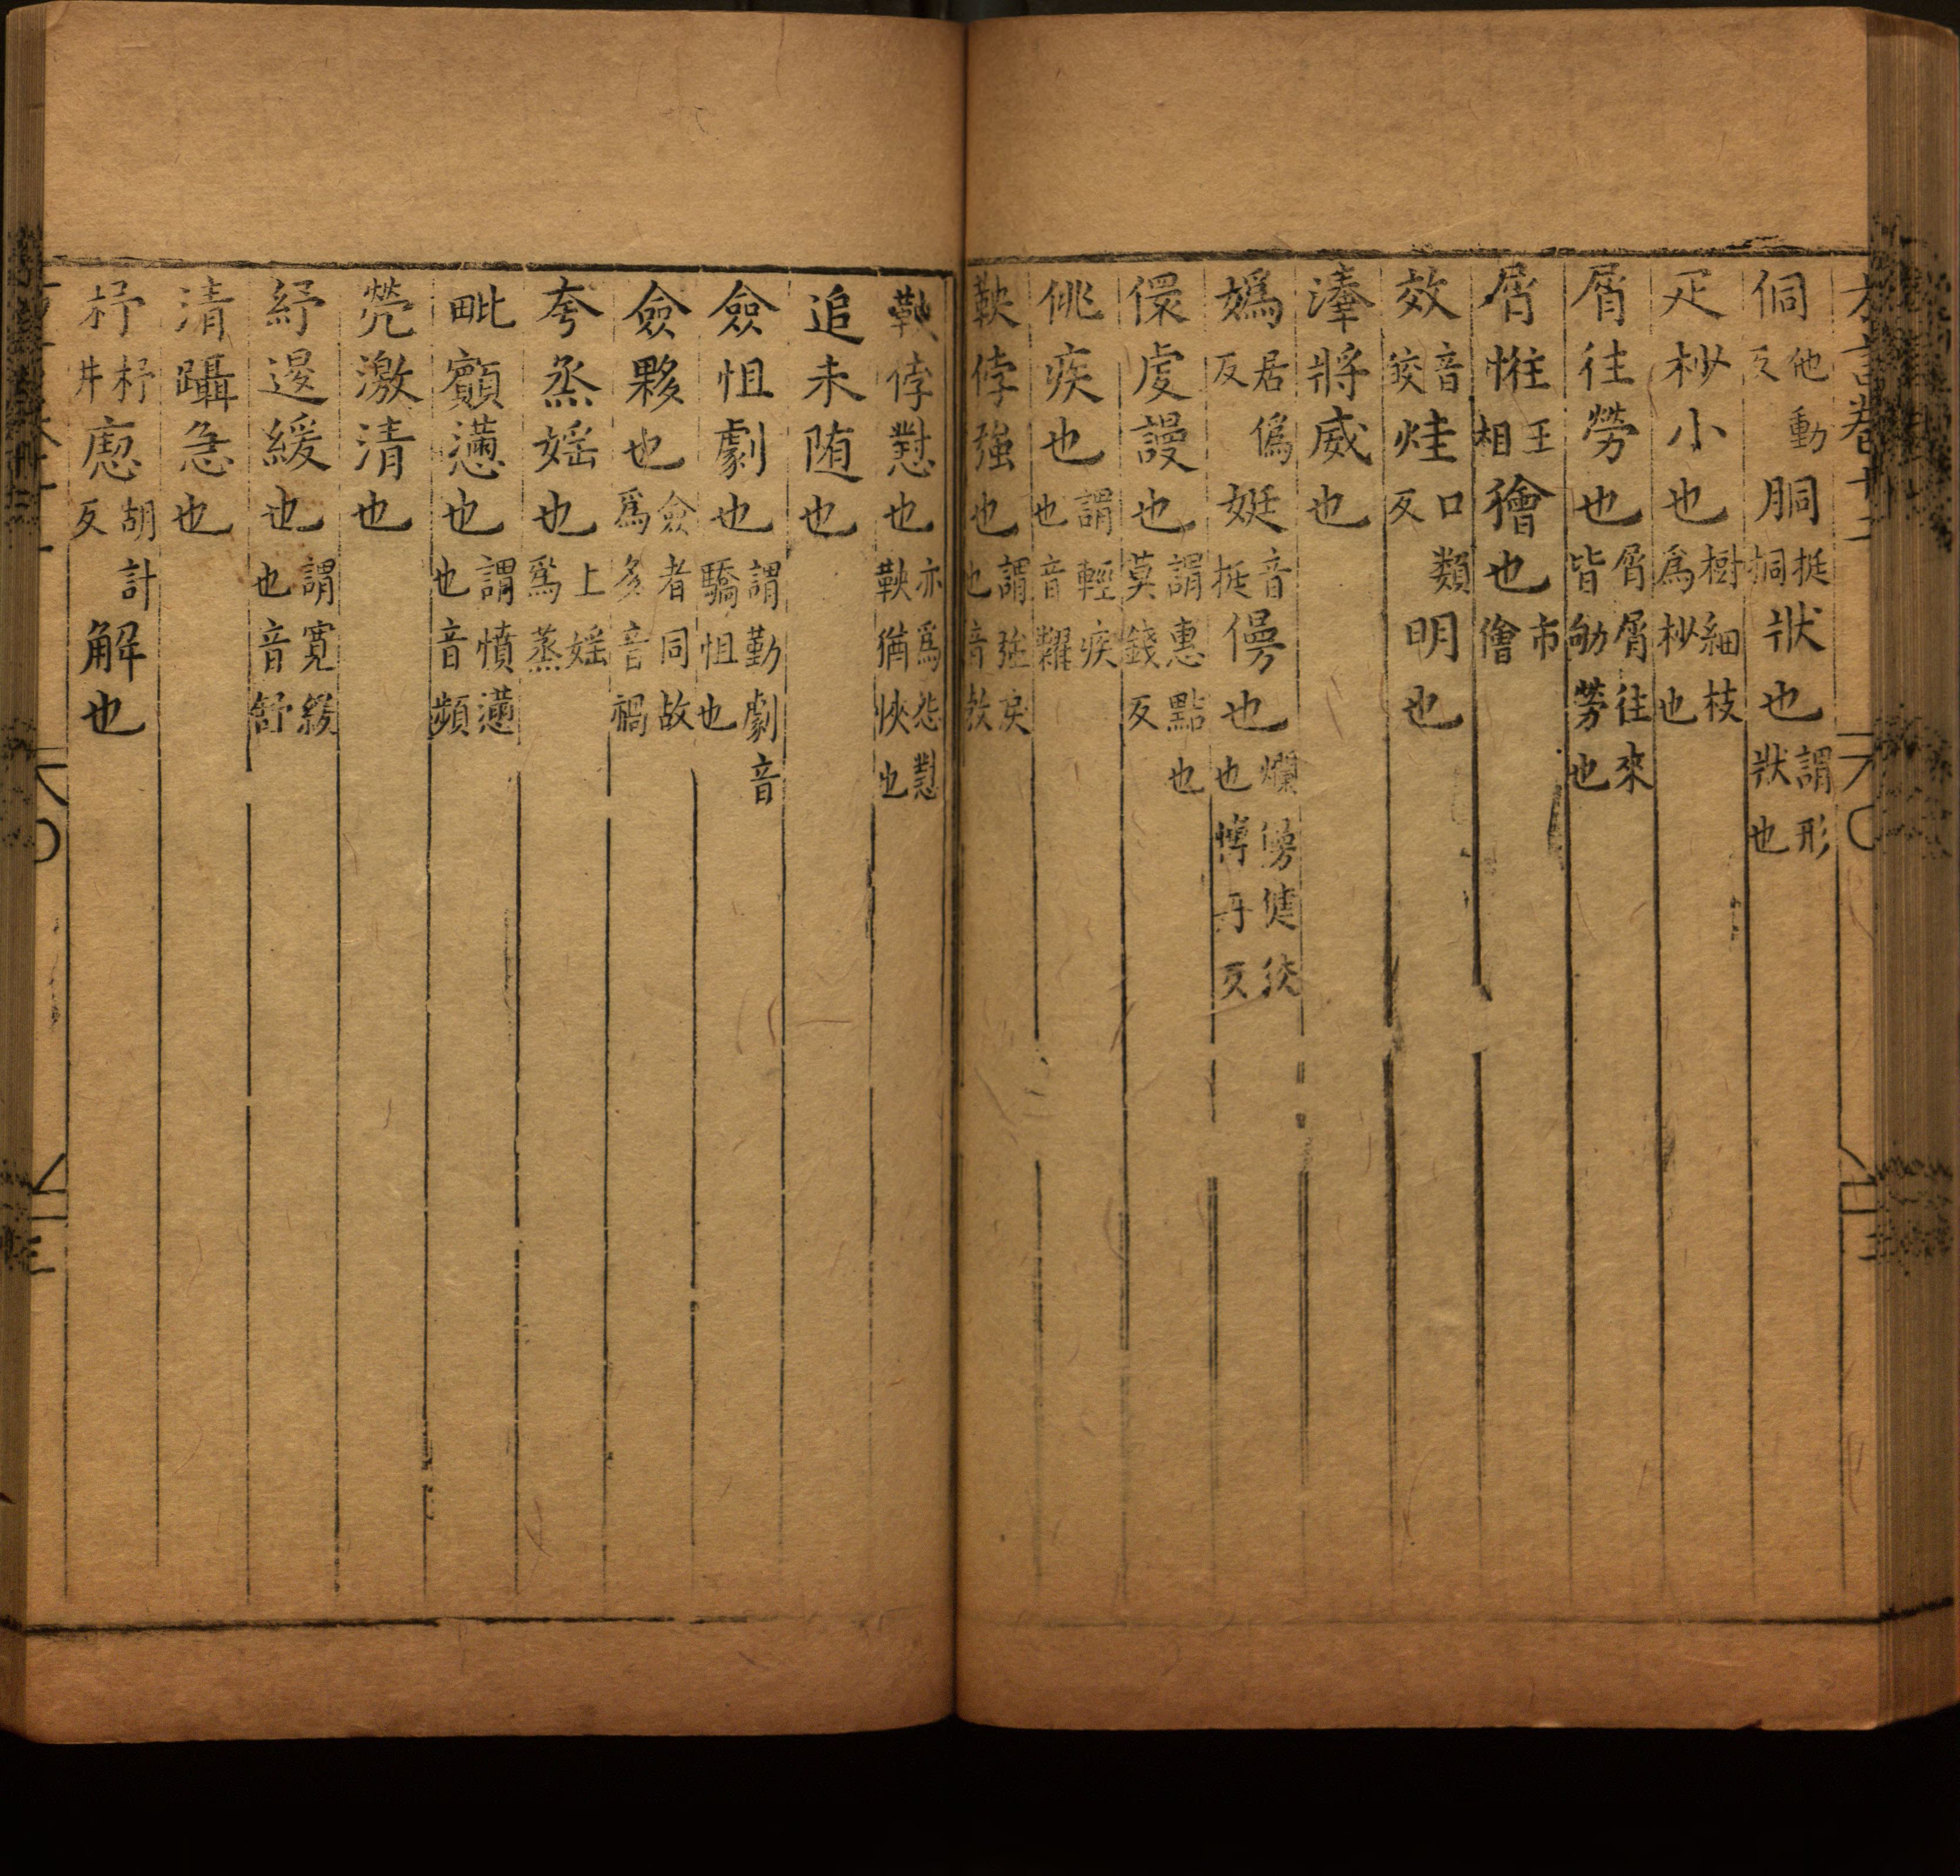 方言卷十二
侗他動反胴挺挏狀也謂形狀也
疋杪小也樹細枝爲杪也
屑往勞也屑屑往來皆劬勞也
屑惟王相獪也市儈
效音皎烓口類反明也
湊將威也
嬀居僞反娗音挺僈也爛僈健狡也博丹反
儇虔謾也謂惠黠也莫錢反
佻疾也謂輕疾也音糶
鞅倖強也謂強戾也音教
鞅倖懟也亦爲怨懟鞅猶怏也
追未随也
僉怚劇也謂勤劇音驕怚也
僉夥也僉者同故爲多音禍
夸烝婬也上婬爲蒸
毗顮懣也謂憤懣也音頻
㷀激清也
紓遏緩也謂寛緩也音舒
清躡急也
杼杼井㾕胡計反解也